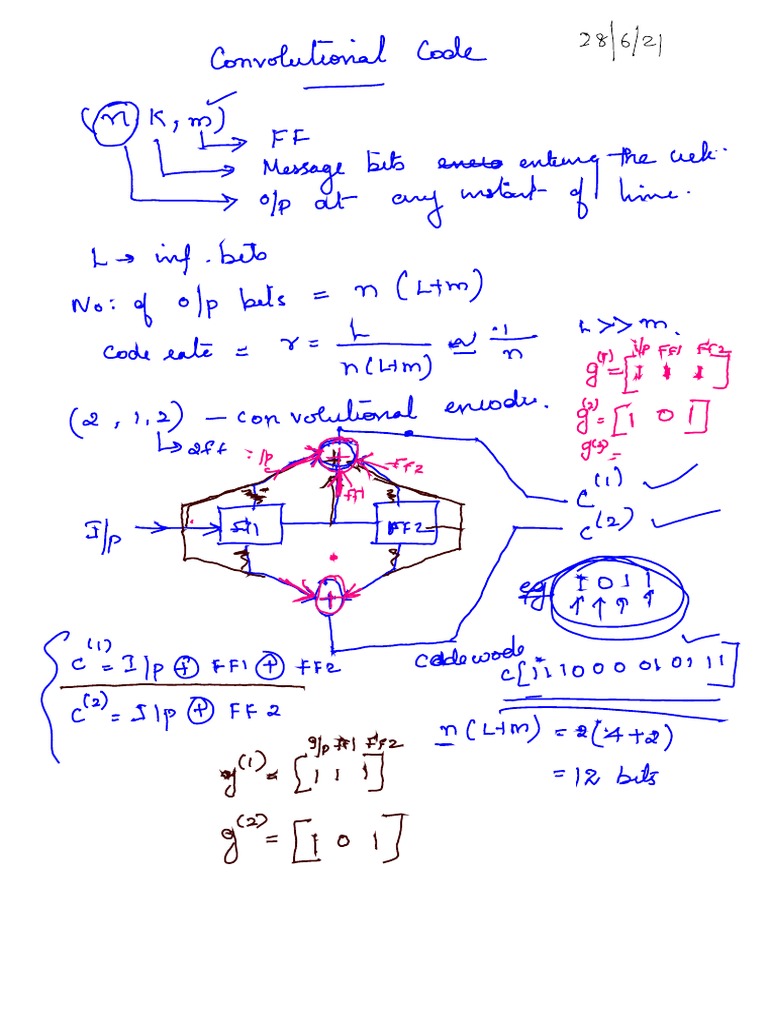 28/6/21
Convolutional Code
(n K, m)
FF
Message bits entering the ckt.
O/p at any instant of time.
L → inf. bits
No: of o/p bits = n (L+m)
L >> m.
code rate = r = L / n(L+m) ≈ 1/n
I/p FF1 FF2
g(1) = [1 1 1]
g(2) = [1 0 1]
g(2) =
(2, 1, 2) – convolutional encoder.
↳ 2ff
I/p
FF2
FF1
C(1)
C(2)
I/p
FF1
FF2
eg 1 0 1 1
C(1) = I/p ⊕ FF1 ⊕ FF2
C(2) = I/p ⊕ FF2
codeword
c[11 10 00 01 01 11]
n(L+m) = 2(4+2)
= 12 bits
I/p FF1 FF2
g(1) = [1 1 1]
g(2) = [1 0 1]